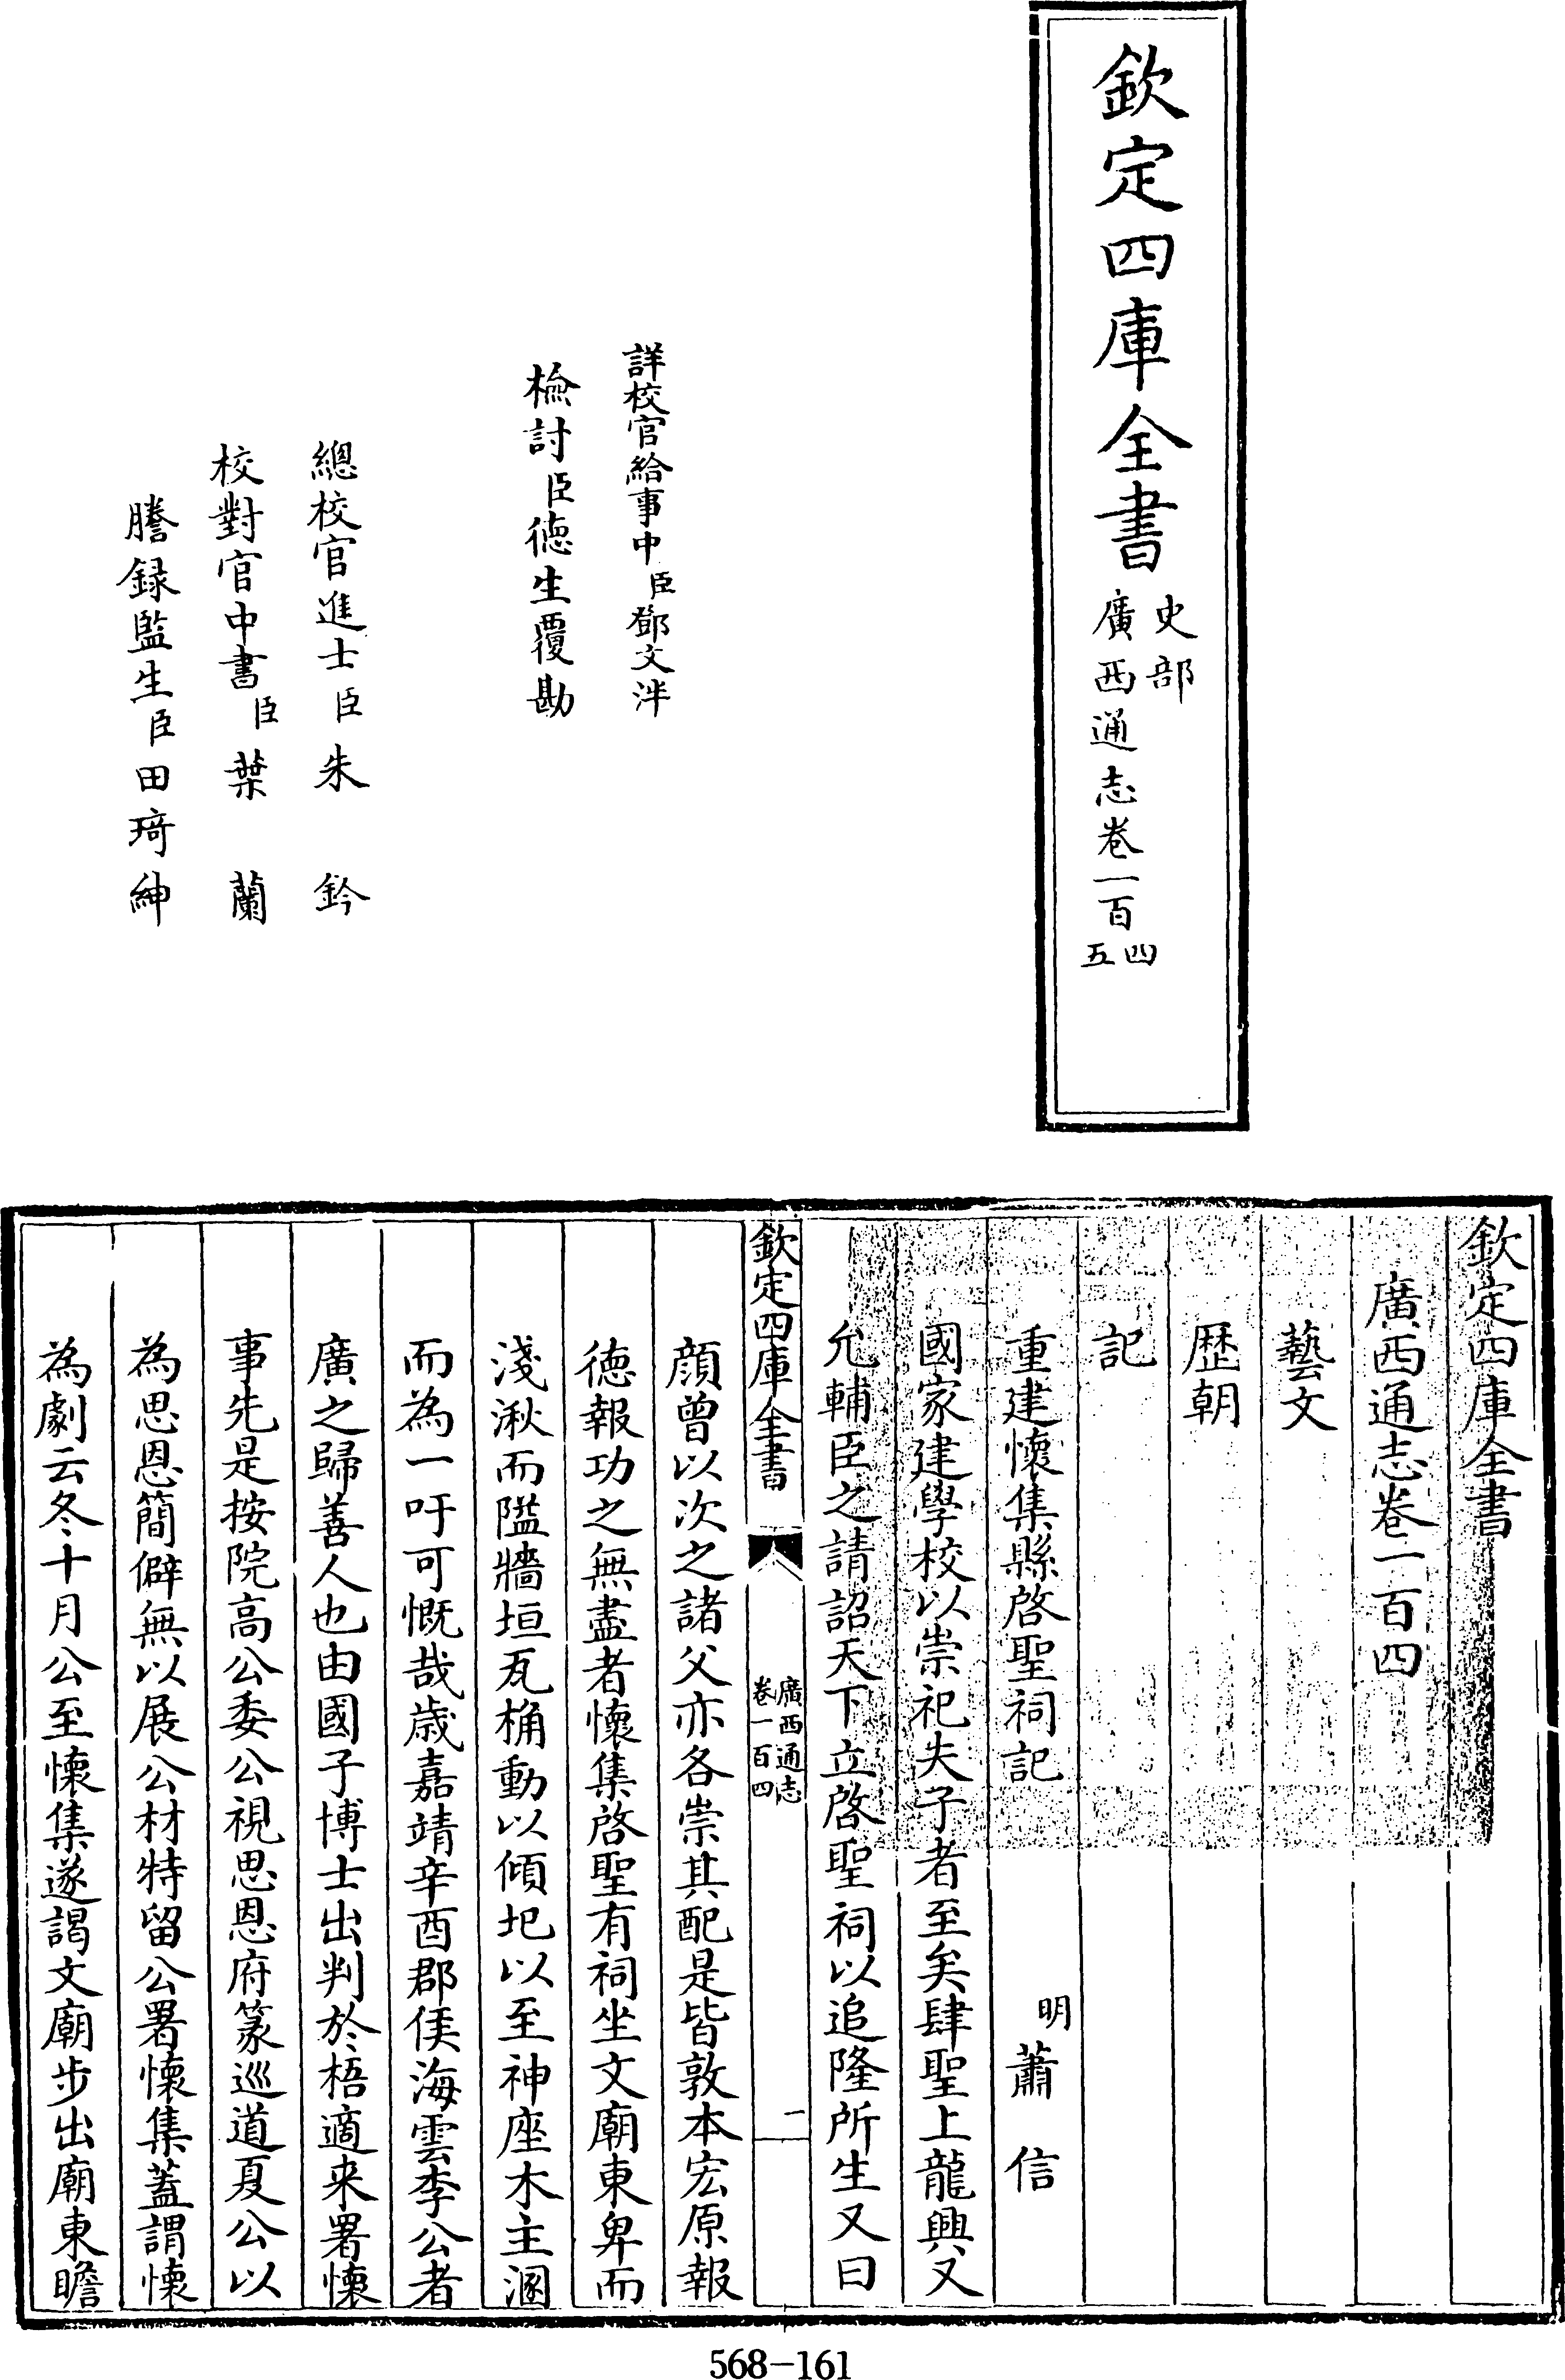 欽定四庫全書
史部
廣西通志卷一百
四
五
詳校官給事中臣鄧文泮
檢討臣德生覆勘
總校官進士臣朱鈐
校對官中書臣葉蘭
謄録監生臣田琦紳
欽定四庫全書
廣西通志卷一百四
藝文
歴朝
記
重建懷集縣啓聖祠記 明 蕭信
國家建學校以崇祀夫子者至矣肆聖上龍興又
允輔臣之請詔天下立啓聖祠以追隆所生又曰
欽定四庫全書
廣西通志
卷一百四
一
顔曾以次之諸父亦各崇其配是皆敦本宏原報
德報功之無盡者懷集啓聖有祠坐文廟東卑而
淺湫而隘牆垣瓦桷動以傾圮以至神座木主溷
而為一吁可慨哉歲嘉靖辛酉郡侯海雲李公者
廣之歸善人也由國子博士出判於梧適来署懷
事先是按院高公委公視思恩府篆巡道夏公以
為思恩簡僻無以展公材特留公署懷集蓋謂懷
為劇云冬十月公至懷集遂謁文廟步出廟東瞻
568-161